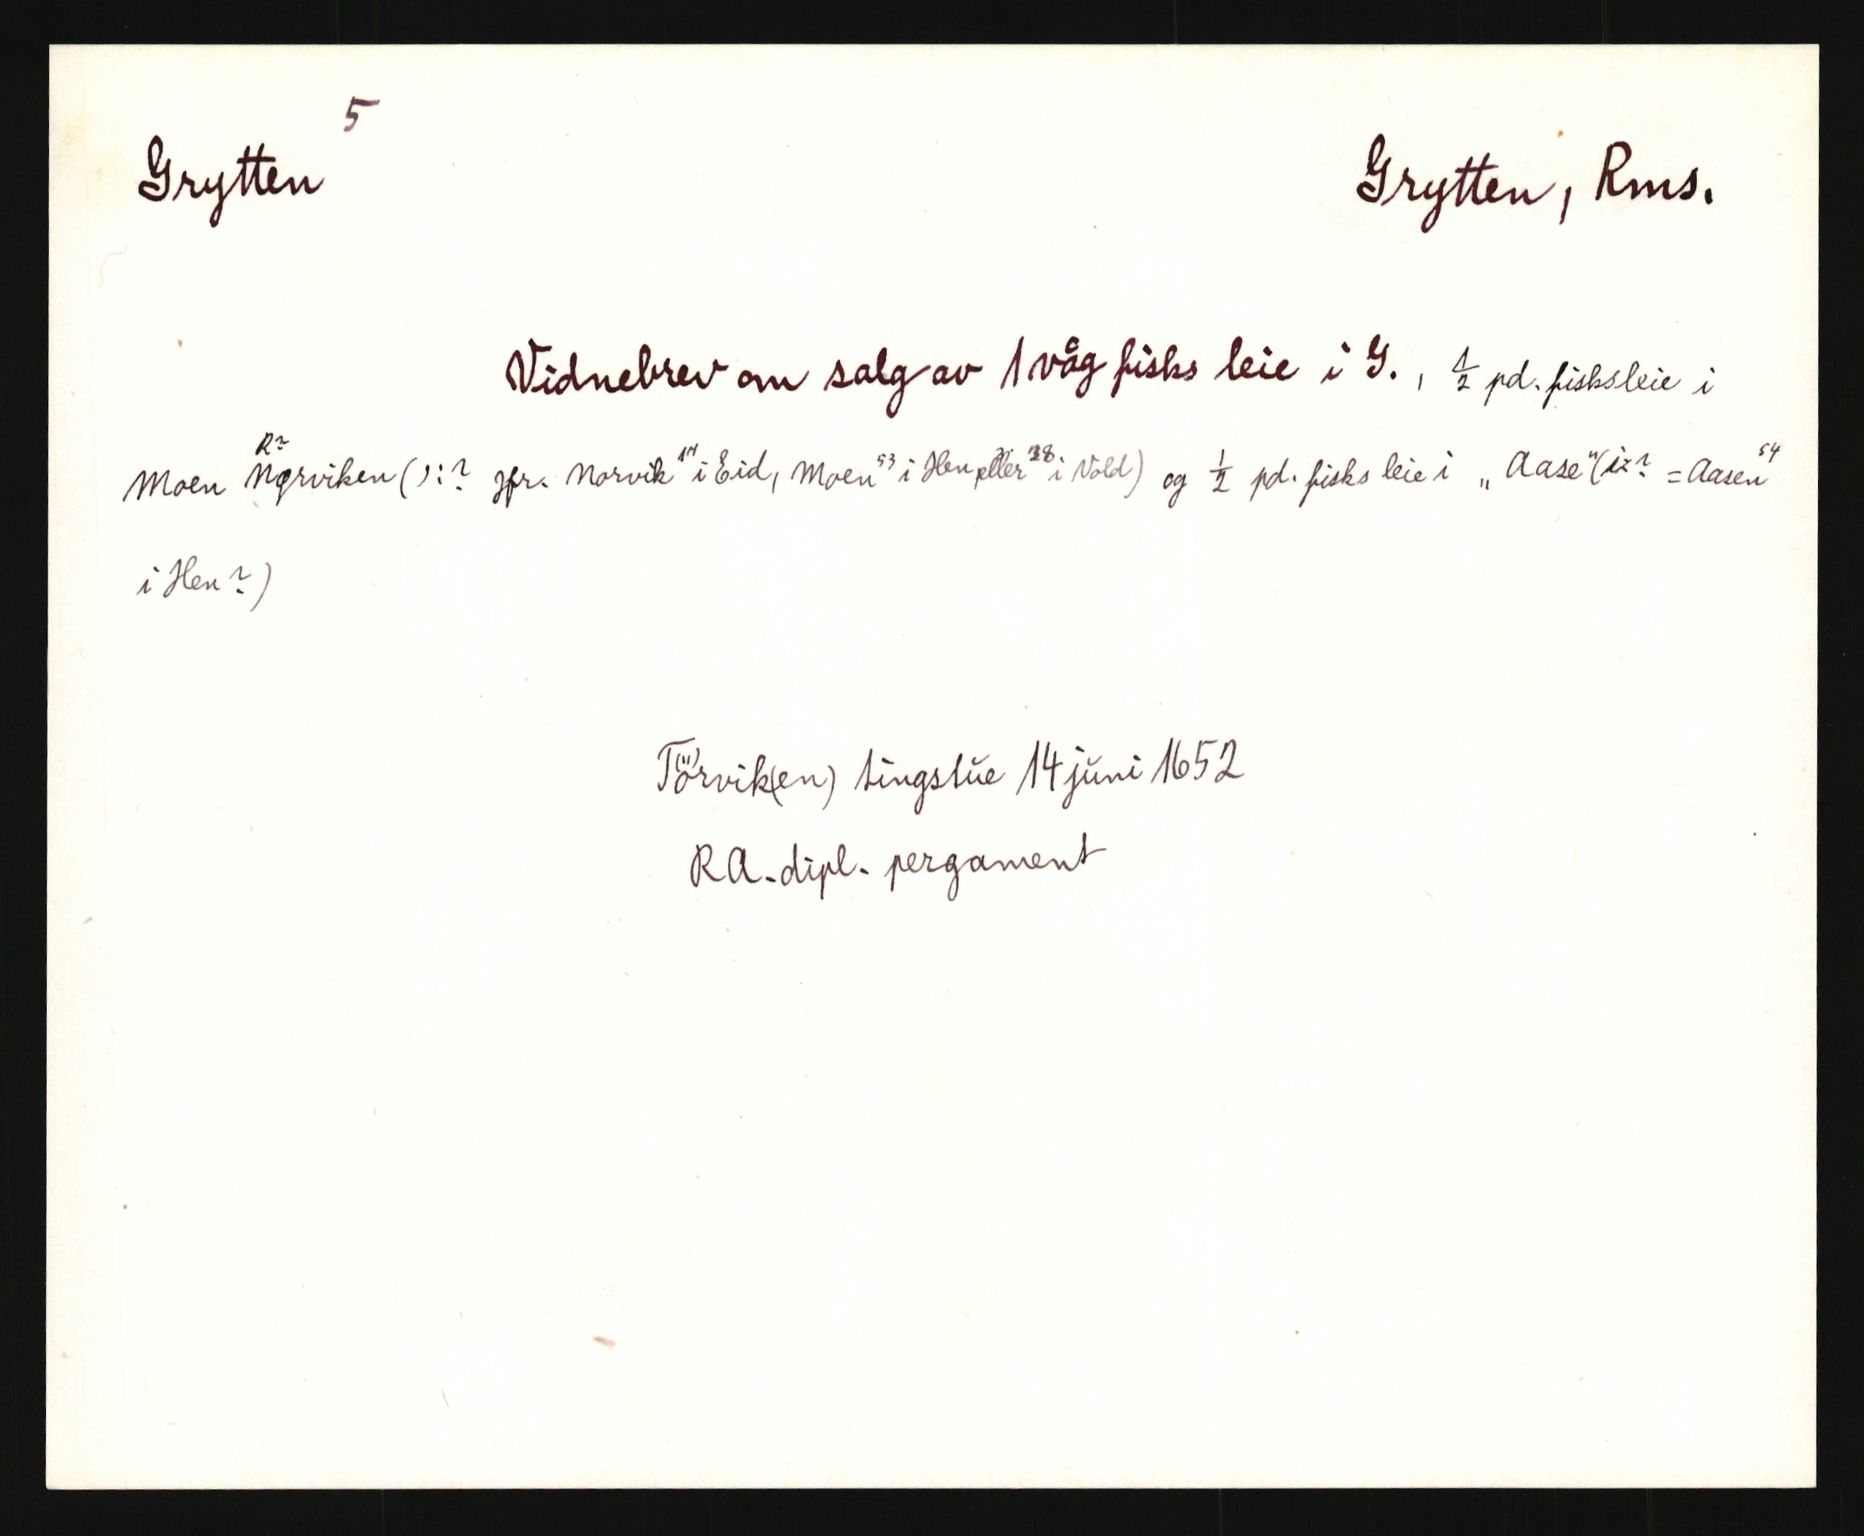 Grytten 5
Grytten, Rms.
Vidnebrev om salg av 1 våg fisks leie i G., ½ pd. fisksleie i
R?
Moen Nørviken (ɔ:? jfr. Norvik 14 i Eid, Moen 53 i Hen eller 28 i Vold) og ½ pd. fisks leie i „Aase" (i=? = Aasen 54
i Hen?)
Törvik(en) tingstŭe 14 jŭni 1652
RA. dipl. pergament